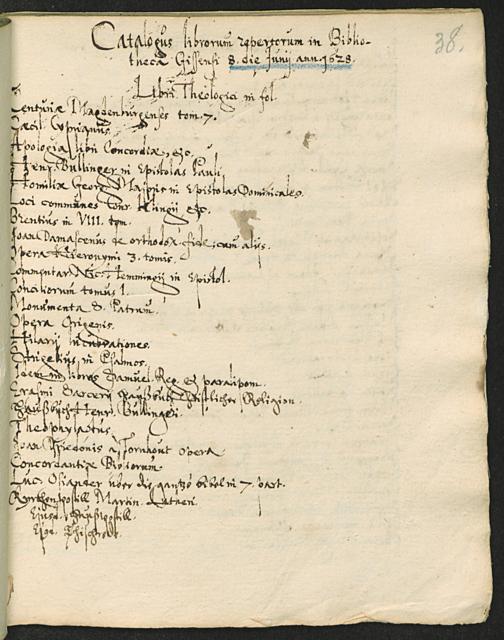 38.
Catalogus librorum repertorum in Biblio-
theca Gissensi 8. die Junij ann. 1628.
Libri Theologici in fol.
Centuriæ Magdenburgenses tom. 7.
Cæcil. Cyprianus.
Apologia libri Concordiæ, etc.
Henr. Bullinger in Epistolas Pauli
Homiliæ Georg Maioris in Epistolas Dominicales.
Loci communes Conr. Klingij etc.
Brentius in VIII. tom.
Joan Damascenus de orthodox. fide, cum alijs.
Opera Hieronymi 3. tomis.
Commentar. Nic. Hemmingij in Epistol.
Conciliorum tomus 1.
Monumenta S. Patrum.
Opera Origenis.
Hilarij lucubrationes.
Strigelius in Psalmos.
Idem in libros Samuel. Reg. et paralipom.
Erasmi Sarcerij Christlicher Religion.
Haußbuch Henr. Bullingeri.
Theophylactus.
Joan Hisedonis a Tornhout opera
Concordantiæ Bibliorum.
Luc. Osiander über die gantze bibel in 7 part.
Kirchenpostill Martin. Lutheri.
Ejusd. Haußpostill.
Ejus. Tischred.